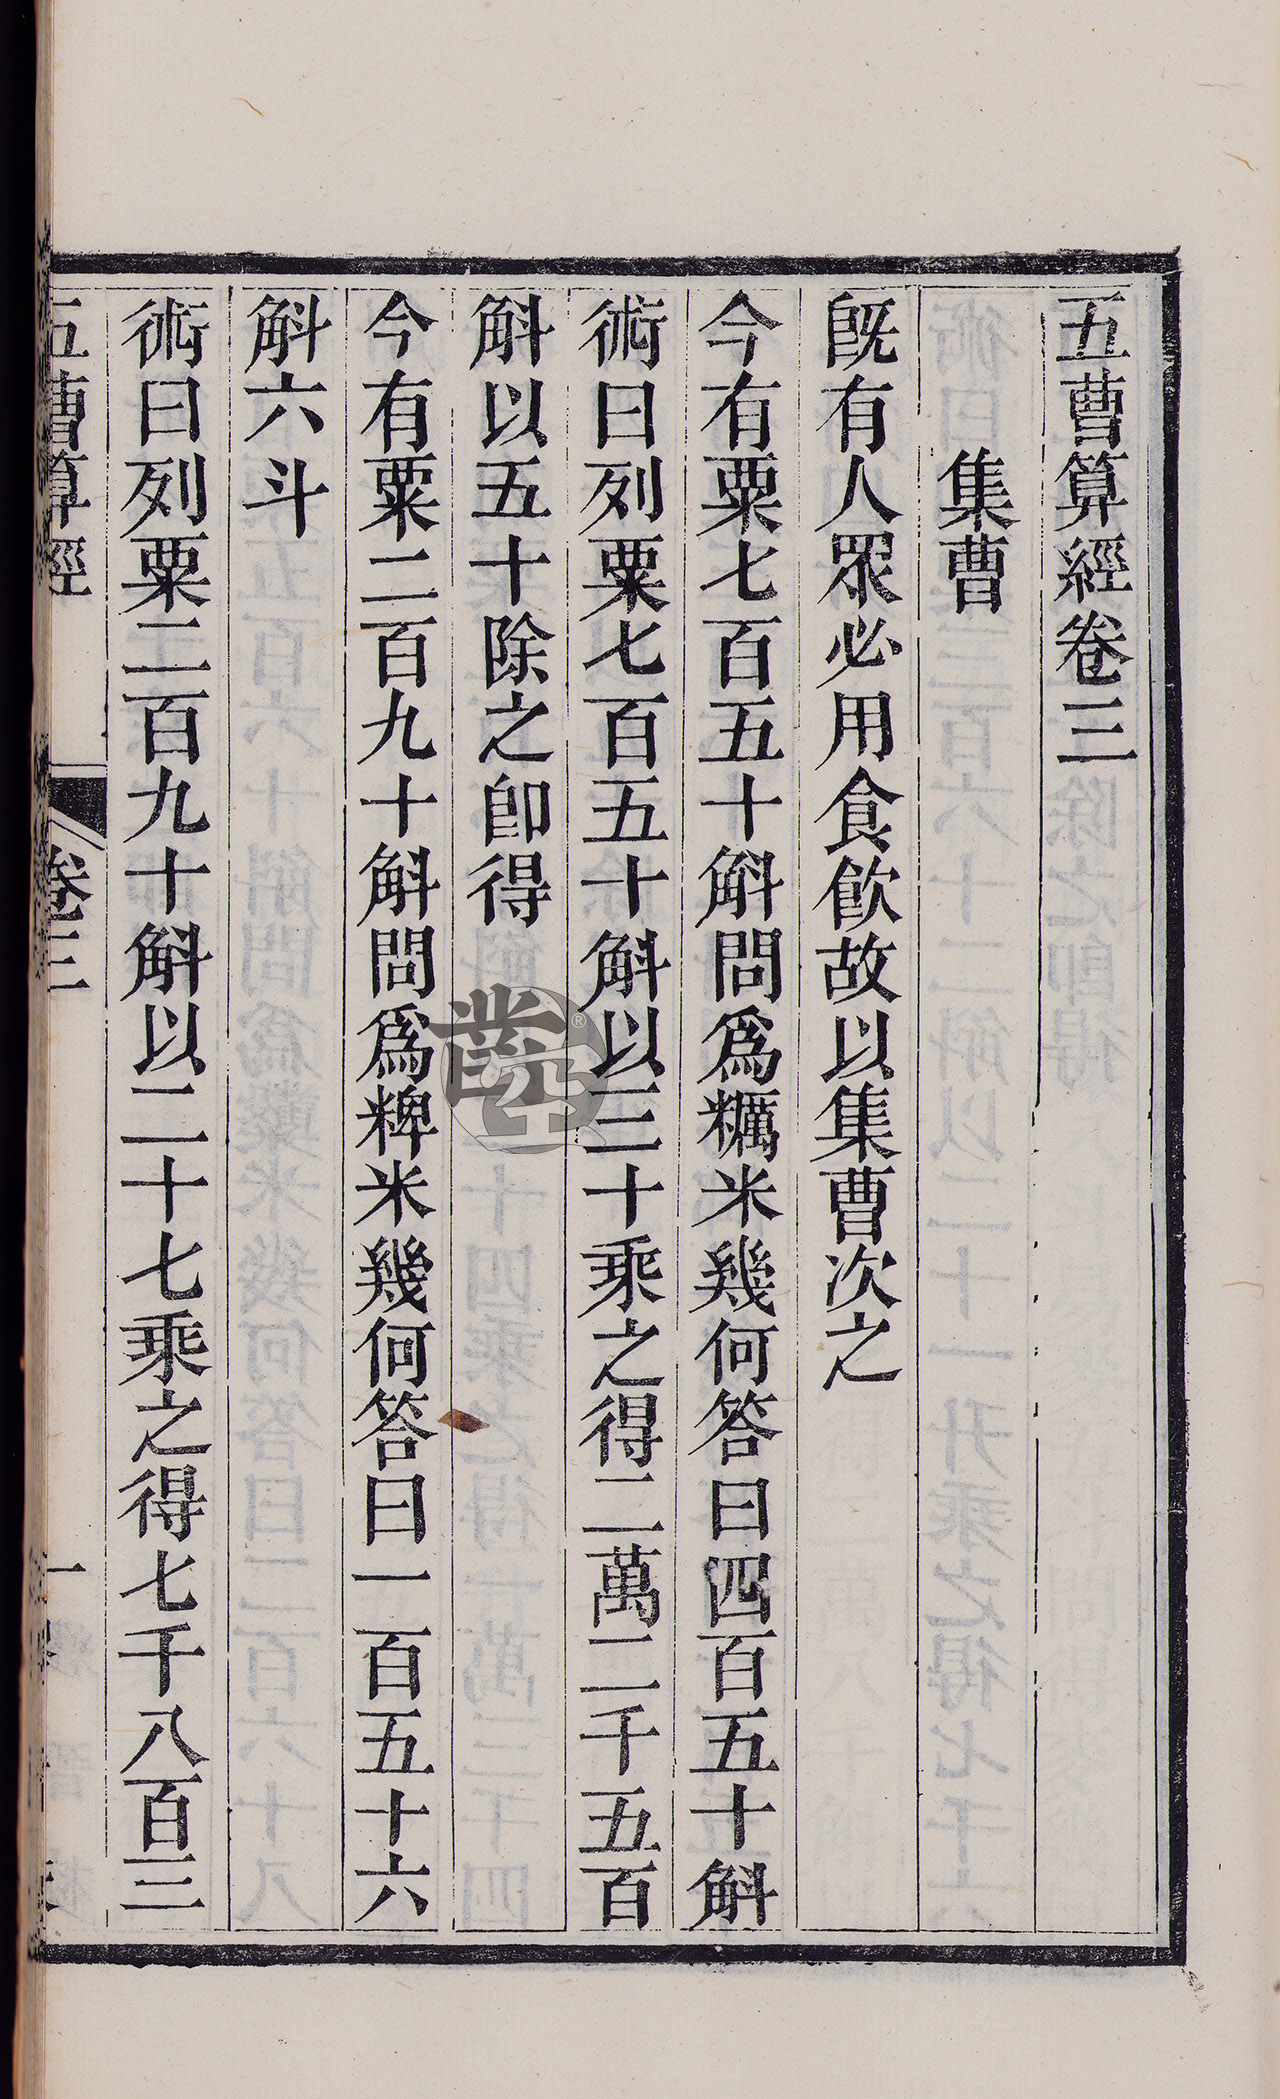 五曹算經卷三
集曹
既有人眾必用食飲故以集曹次之
今有粟七百五十斛問爲糲米幾何答曰四百五十斛
術曰列粟七百五十斛以三十乘之得二萬二千五百
斛以五十除之卽得
今有粟二百九十斛問爲粺米幾何答曰一百五十六
斛六斗
術曰列粟二百九十斛以二十七乘之得七千八百三
五曹算經 卷三 一